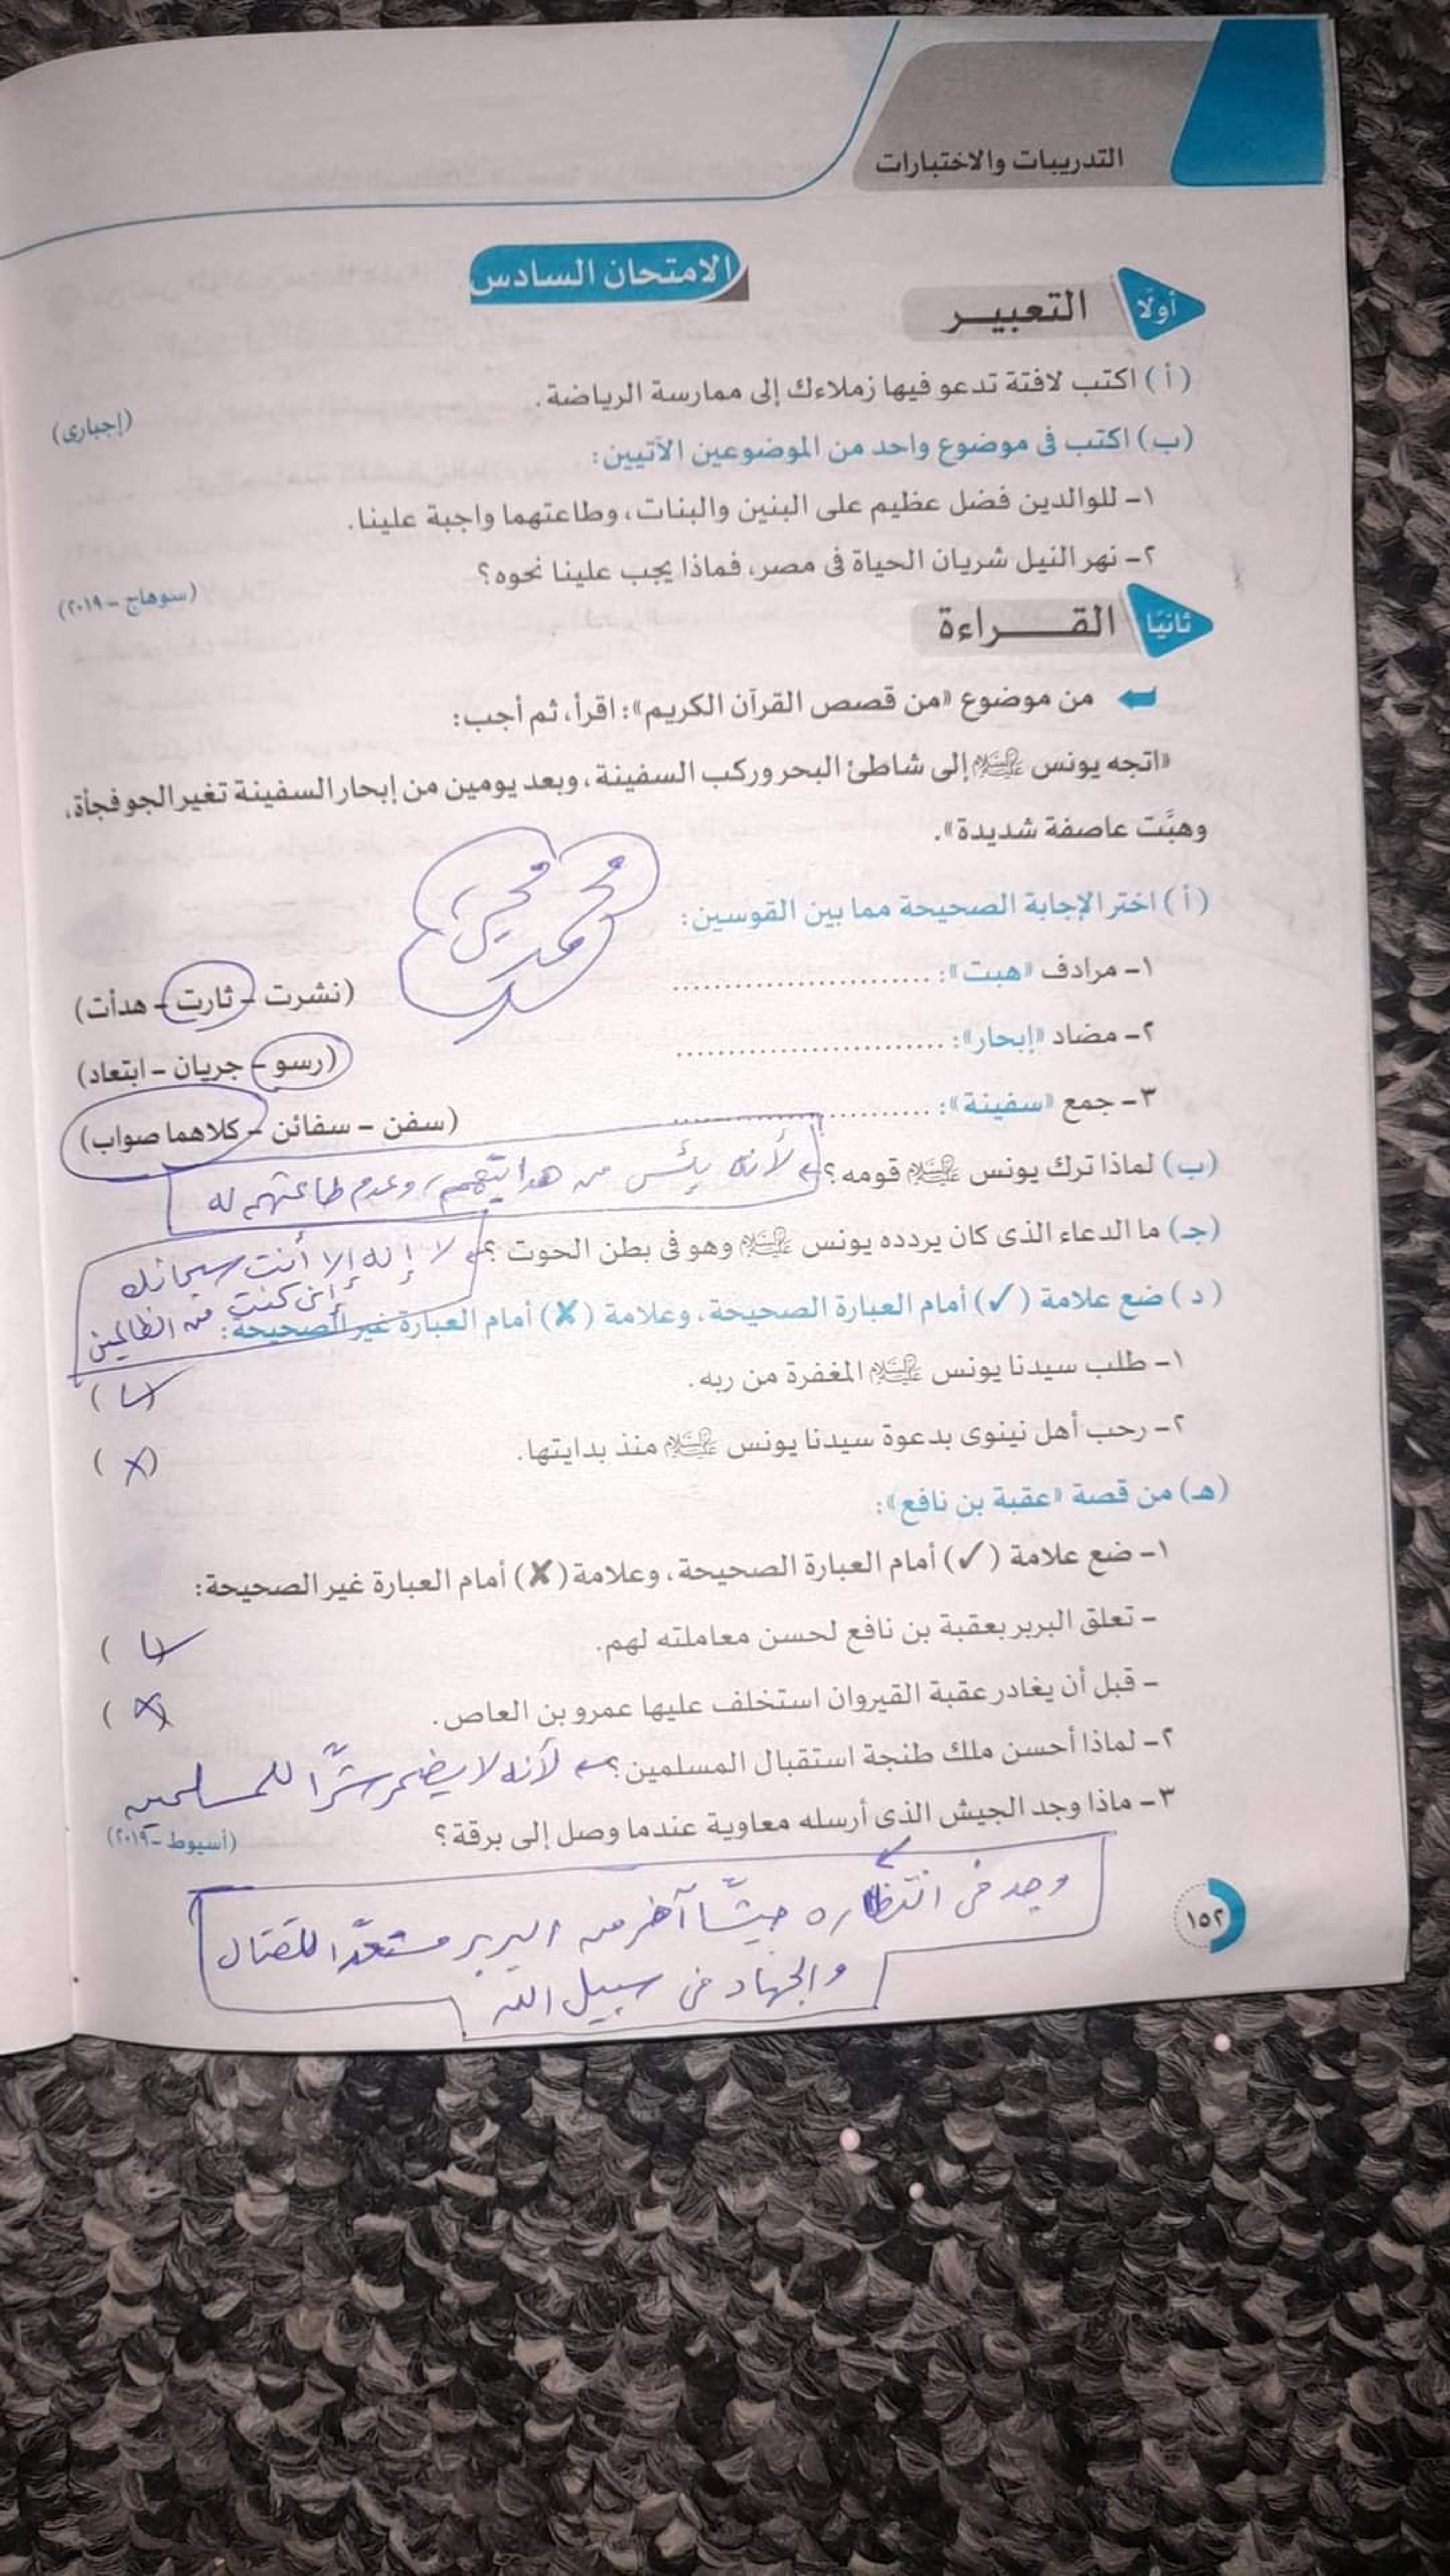 التدريبات والاختبارات
الامتحان السادس
أولًا التعبير
(أ) اكتب لافتة تدعو فيها زملاءك إلى ممارسة الرياضة.
(إجبارى)
(ب) اكتب فى موضوع واحد من الموضوعين الآتيين:
١- للوالدين فضل عظيم على البنين والبنات، وطاعتهما واجبة علينا.
٢- نهر النيل شريان الحياة فى مصر، فماذا يجب علينا نحوه؟
(سوهاج - ٢٠١٩)
ثانيًا القراءة
من موضوع «من قصص القرآن الكريم»: اقرأ، ثم أجب:
«اتجه يونس عليه السلام إلى شاطئ البحر وركب السفينة، وبعد يومين من إبحار السفينة تغير الجو فجأة،
وهبَّت عاصفة شديدة».
(أ) اختر الإجابة الصحيحة مما بين القوسين:
١- مرادف «هبت»: .......................... (نشرت - ثارت - هدأت)
٢- مضاد «إبحار»: .......................... (رسو - جريان - ابتعاد)
٣- جمع «سفينة»: .......................... (سفن - سفائن - كلاهما صواب)
(ب) لماذا ترك يونس عليه السلام قومه؟ لأنه يئس من هدايتهم، وعدم طاعتهم له
(جـ) ما الدعاء الذى كان يردده يونس عليه السلام وهو فى بطن الحوت؟ لا إله إلا أنت سبحانك
إنى كنت من الظالمين
(د) ضع علامة (✓) أمام العبارة الصحيحة، وعلامة (✗) أمام العبارة غير الصحيحة:
١- طلب سيدنا يونس عليه السلام المغفرة من ربه. (✓)
٢- رحب أهل نينوى بدعوة سيدنا يونس عليه السلام منذ بدايتها. (✗)
(هـ) من قصة «عقبة بن نافع»:
١- ضع علامة (✓) أمام العبارة الصحيحة، وعلامة (✗) أمام العبارة غير الصحيحة:
- تعلق البربر بعقبة بن نافع لحسن معاملته لهم. (✓)
- قبل أن يغادر عقبة القيروان استخلف عليها عمرو بن العاص. (✗)
٢- لماذا أحسن ملك طنجة استقبال المسلمين؟ لأنه لا يضمر شرًّا للمسلمين
٣- ماذا وجد الجيش الذى أرسله معاوية عندما وصل إلى برقة؟
(أسيوط - ٢٠١٩)
وجد فى انتظاره جيشًا آخر من البربر مستعدًّا للقتال
والجهاد فى سبيل الله
١٥٢